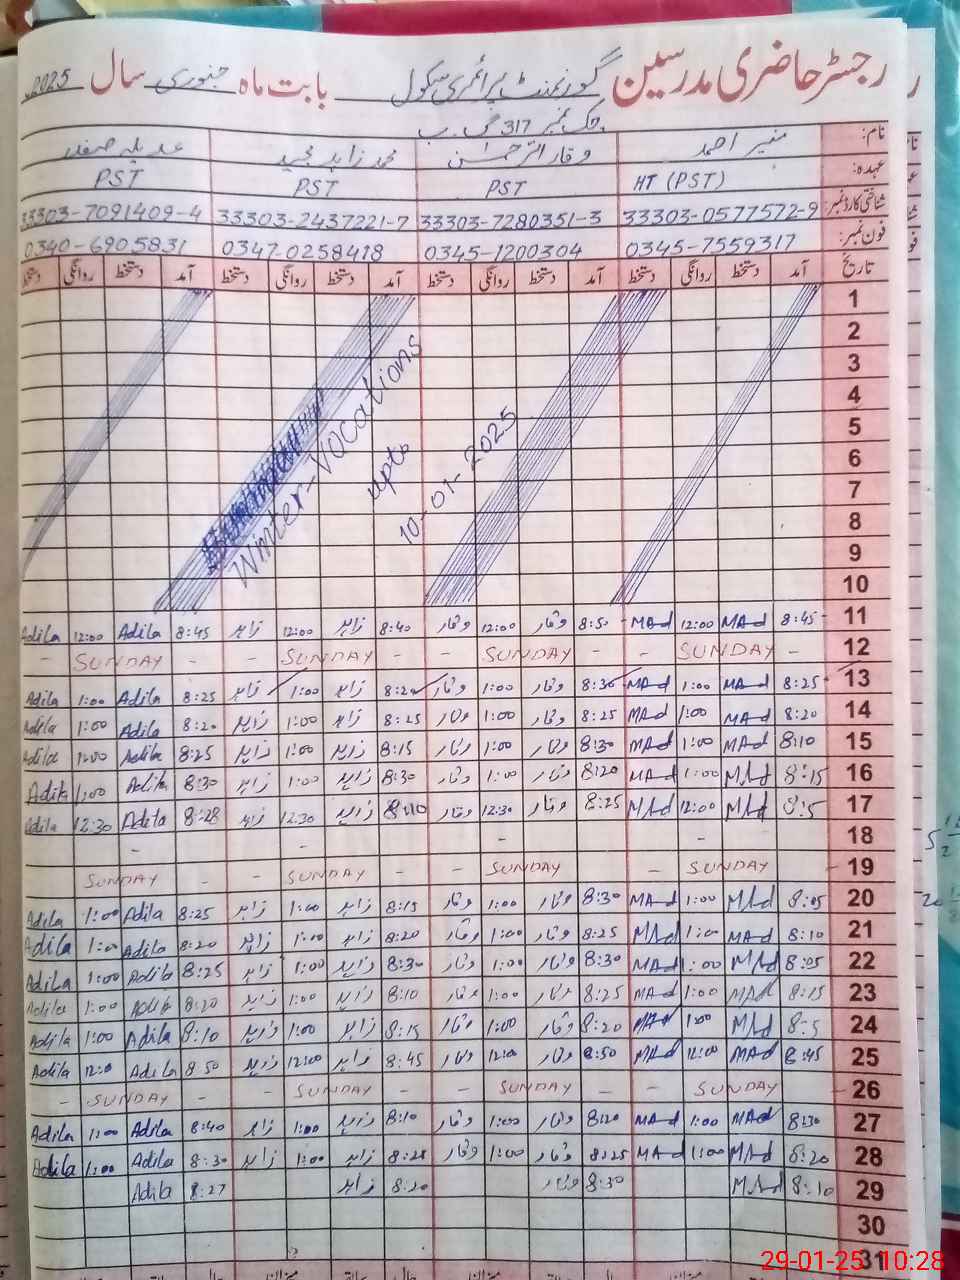 رجسٹر حاضری مدرسین گورنمنٹ پرائمری سکول بابت ماہ جنوری سال 2025
چک نمبر 317 ج۔ ب
نام: منیر احمد وقار الرحمٰن محمد زاہد مجید عدیلہ صفدر
عہدہ: HT (PST) PST PST PST
شناختی کارڈ نمبر: 33303-0577572-9 33303-7280351-3 33303-2437221-7 33303-7091409-4
فون نمبر: 0345-7559317 0345-1200304 0347-0258418 0340-6905831
تاریخ آمد دستخط روانگی دستخط آمد دستخط روانگی دستخط آمد دستخط روانگی دستخط آمد دستخط روانگی دستخط
1
2
3
4
5
6
7
8
9
10
Winter-Vocations
upto
10-01-2025
11 8:45 MAd 12:00 MAd 8:50 وقار 12:00 وقار 8:40 زاہد 12:00 زاہد 8:45 Adila 12:00 Adila
12 SUNDAY SUNDAY SUNDAY SUNDAY
13 8:25 MAd 1:00 MAd 8:30 وقار 1:00 وقار 8:20 زاہد 1:00 زاہد 8:25 Adila 1:00 Adila
14 8:20 MAd 1:00 MAd 8:25 وقار 1:00 وقار 8:25 زاہد 1:00 زاہد 8:20 Adila 1:00 Adila
15 8:10 MAd 1:00 MAd 8:30 وقار 1:00 وقار 8:15 زاہد 1:00 زاہد 8:25 Adila 1:00 Adila
16 8:15 MAd 1:00 MAd 8:20 وقار 1:00 وقار 8:30 زاہد 1:00 زاہد 8:30 Adila 1:00 Adila
17 8:5 MAd 12:00 MAd 8:25 وقار 12:30 وقار 8:10 زاہد 12:30 زاہد 8:28 Adila 12:30 Adila
18 - - - -
19 SUNDAY SUNDAY SUNDAY SUNDAY
20 8:05 MAd 1:00 MAd 8:30 وقار 1:00 وقار 8:15 زاہد 1:00 زاہد 8:25 Adila 1:00 Adila
21 8:10 MAd 1:00 MAd 8:25 وقار 1:00 وقار 8:20 زاہد 1:00 زاہد 8:20 Adila 1:00 Adila
22 8:05 MAd 1:00 MAd 8:30 وقار 1:00 وقار 8:30 زاہد 1:00 زاہد 8:25 Adila 1:00 Adila
23 8:15 MAd 1:00 MAd 8:25 وقار 1:00 وقار 8:10 زاہد 1:00 زاہد 8:20 Adila 1:00 Adila
24 8:5 MAd 1:00 MAd 8:20 وقار 1:00 وقار 8:15 زاہد 1:00 زاہد 8:10 Adila 1:00 Adila
25 8:45 MAd 12:00 MAd 8:50 وقار 12:00 وقار 8:45 زاہد 12:00 زاہد 8:50 Adila 12:0 Adila
26 SUNDAY SUNDAY SUNDAY SUNDAY
27 8:30 MAd 1:00 MAd 8:20 وقار 1:00 وقار 8:10 زاہد 1:00 زاہد 8:40 Adila 1:00 Adila
28 8:20 MAd 1:00 MAd 8:25 وقار 1:00 وقار 8:25 زاہد 1:00 زاہد 8:30 Adila 1:00 Adila
29 8:10 MAd 8:30 وقار 8:20 زاہد 8:27 Adila
30
31
29-01-25 10:28